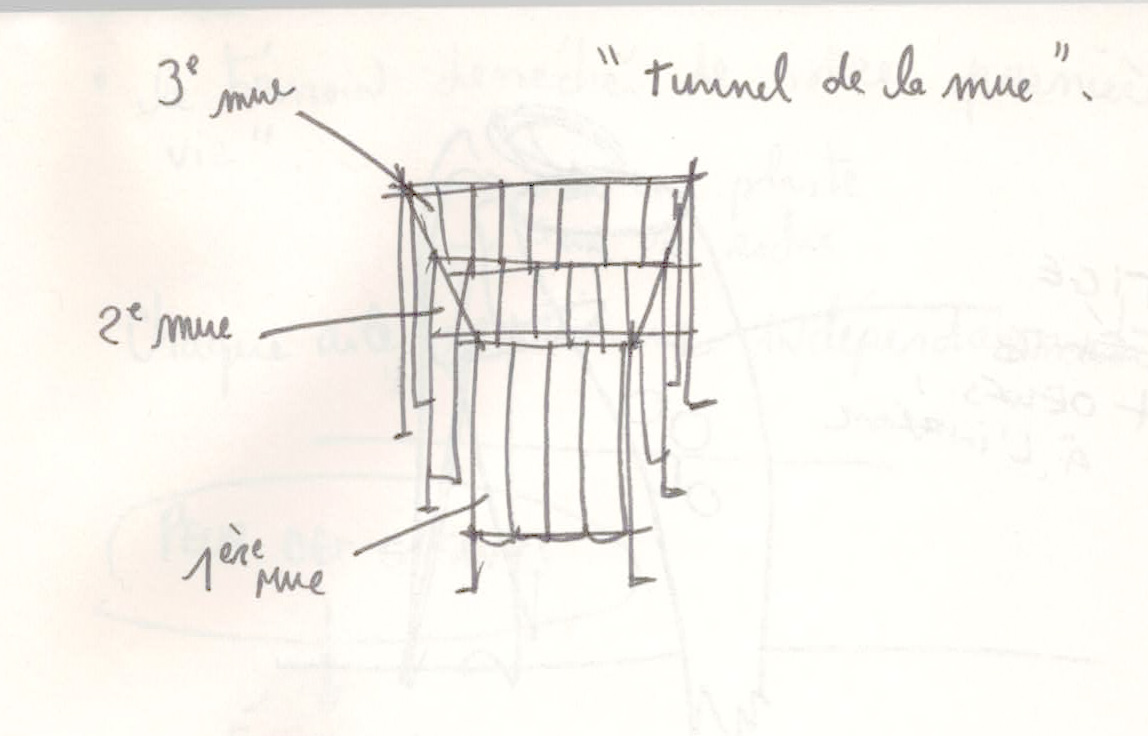 3e mue
"tunnel de la mue".
2e mue
1ère
mue